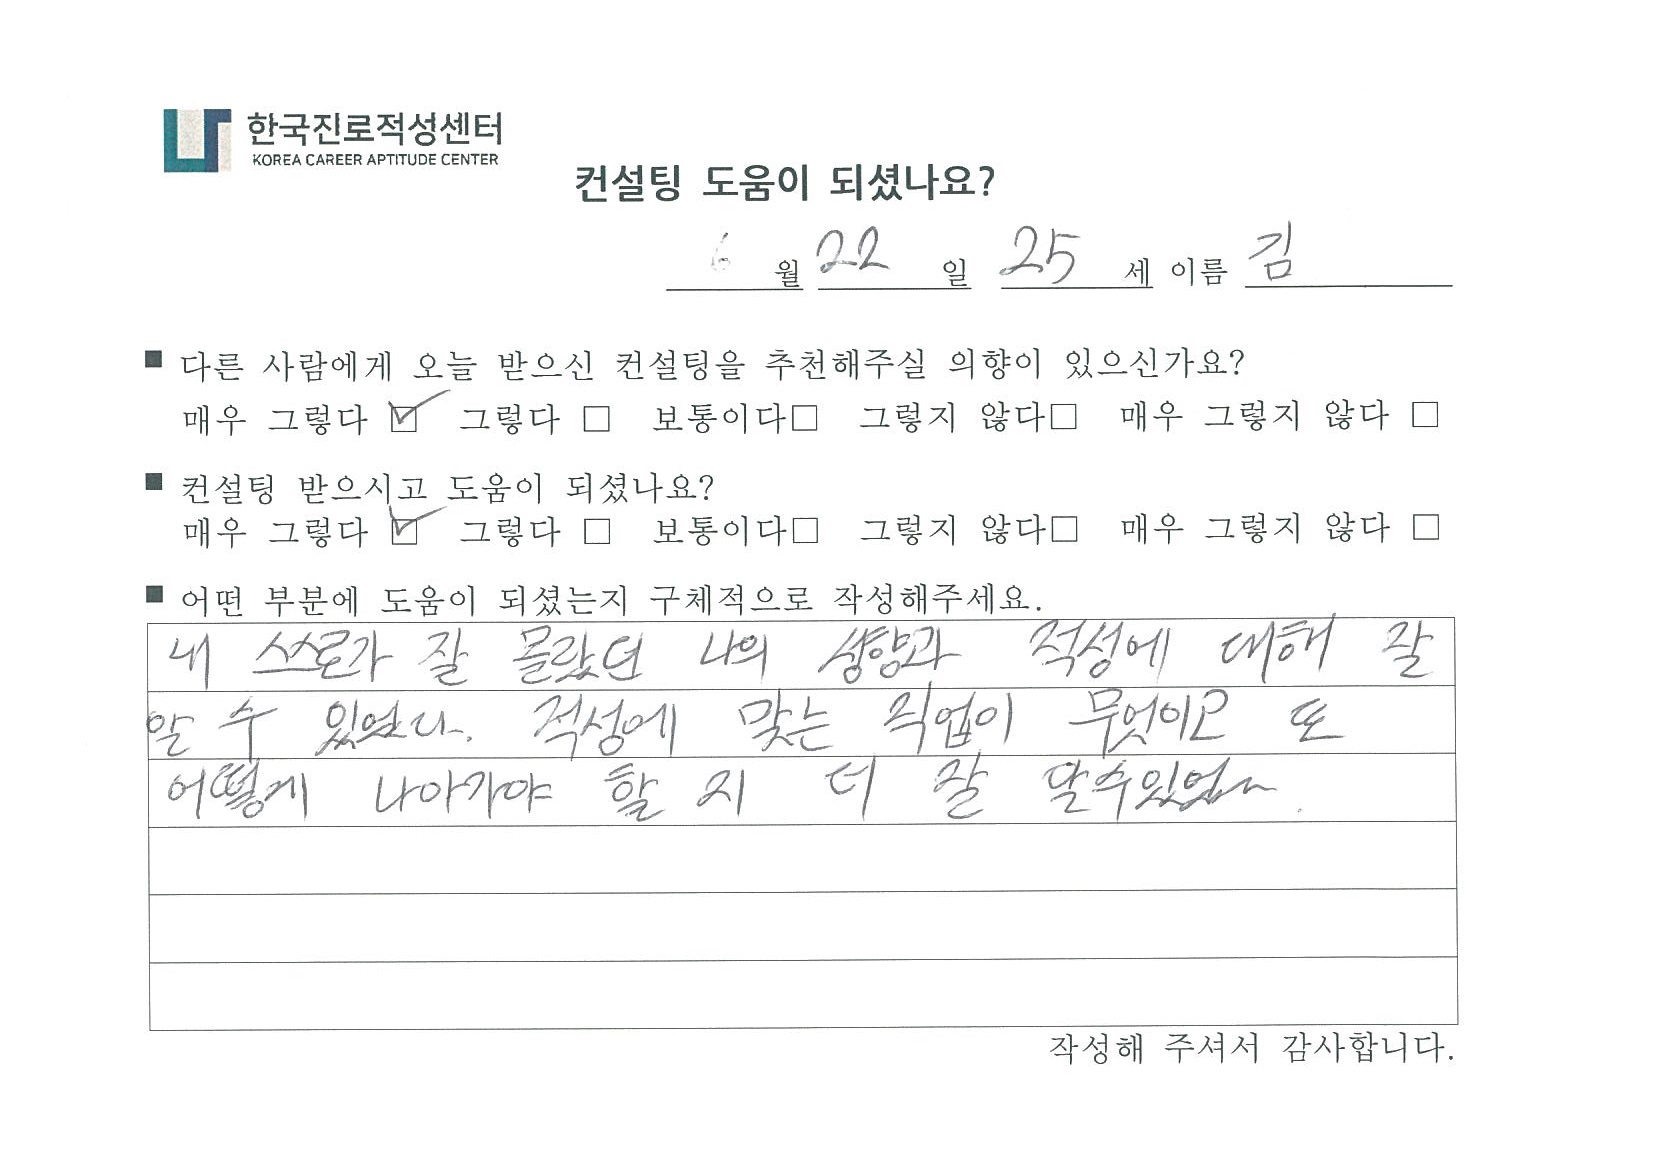 한국진로적성센터
KOREA CAREER APTITUDE CENTER
컨설팅 도움이 되셨나요?
6 월 22 일 25 세 이름 김
■ 다른 사람에게 오늘 받으신 컨설팅을 추천해주실 의향이 있으신가요?
매우 그렇다 ☑ 그렇다 □ 보통이다□ 그렇지 않다□ 매우 그렇지 않다 □
■ 컨설팅 받으시고 도움이 되셨나요?
매우 그렇다 ☑ 그렇다 □ 보통이다□ 그렇지 않다□ 매우 그렇지 않다 □
■ 어떤 부분에 도움이 되셨는지 구체적으로 작성해주세요.
내 스스로가 잘 몰랐던 나의 성향과 적성에 대해 잘
알 수 있었다. 적성에 맞는 직업이 무엇이고 또
어떻게 나아가야 할 지 더 잘 알수있었다.
작성해 주셔서 감사합니다.